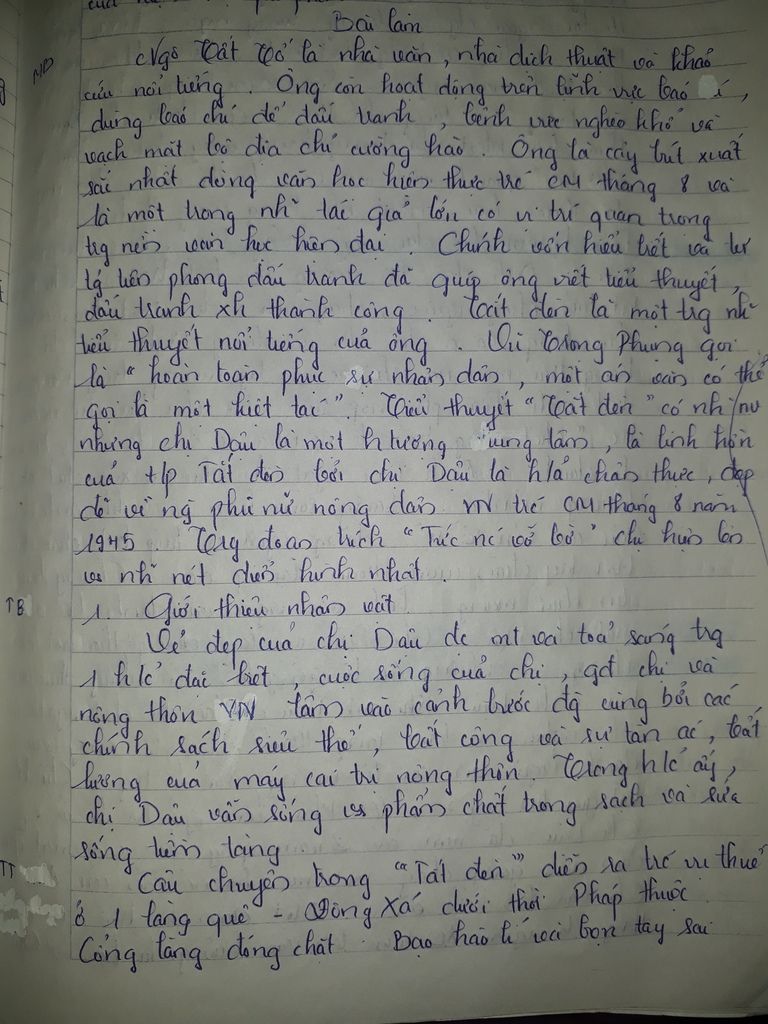 Bài làm
MB
Ngô Tất Tố là nhà văn, nhà dịch thuật và khảo
cứu nổi tiếng. Ông còn hoạt động trên lĩnh vực báo
dùng báo chí để đấu tranh, bênh vực nghèo khổ và
vạch mặt bộ địa chủ cường hào. Ông là cây bút xuất
sắc nhất dòng văn học hiện thực trc CM tháng 8 và
là một trong nh~ tác giả lớn có vị trí quan trọng
trg nền văn học hiện đại. Chính vốn hiểu biết và tư
tiên phong đấu tranh đã giúp ông viết tiểu thuyết,
đấu tranh xh thành công. Tắt đèn là một trg nh~
tiểu thuyết nổi tiếng của ông. Vũ Trọng Phụng gọi
là "hoàn toàn phục sự nhân dân, một án văn có thể
gọi là một kiệt tác". Tiểu thuyết "Tắt đèn" có nh~ n/v
nhưng chị Dậu là một h tượng trung tâm, là linh hồn
của t/p Tắt đèn bởi chị Dậu là h/ả chân thực, đẹp
đẽ về ng phụ nữ nông dân VN trc CM tháng 8 năm
1945. Trg đoạn trích "Tức nc vỡ bờ" chị hiện lên
vs nh~ nét điển hình nhất.
TB
1. Giới thiệu nhân vật
Vẻ đẹp của chị Dậu đc mt và toả sáng trg
1 h/c đặc biệt, cuộc sống của chị, gđ chị và
nông thôn VN lâm vào cảnh bước đg cùng bởi các
chính sách sưu thế, bất công và sự tàn ác, bất
lương của máy cai trị nông thôn. Trong h/c ấy,
chị Dậu vẫn sống vs phẩm chất trong sạch và sức
sống tiềm tàng
TT
Câu chuyện trong "Tắt đèn" diễn ra trc vụ thuế
ở 1 làng quê - Đông Xá dưới thời Pháp thuộc
Cổng làng đóng chặt. Bọn hào lí và bọn tay sai